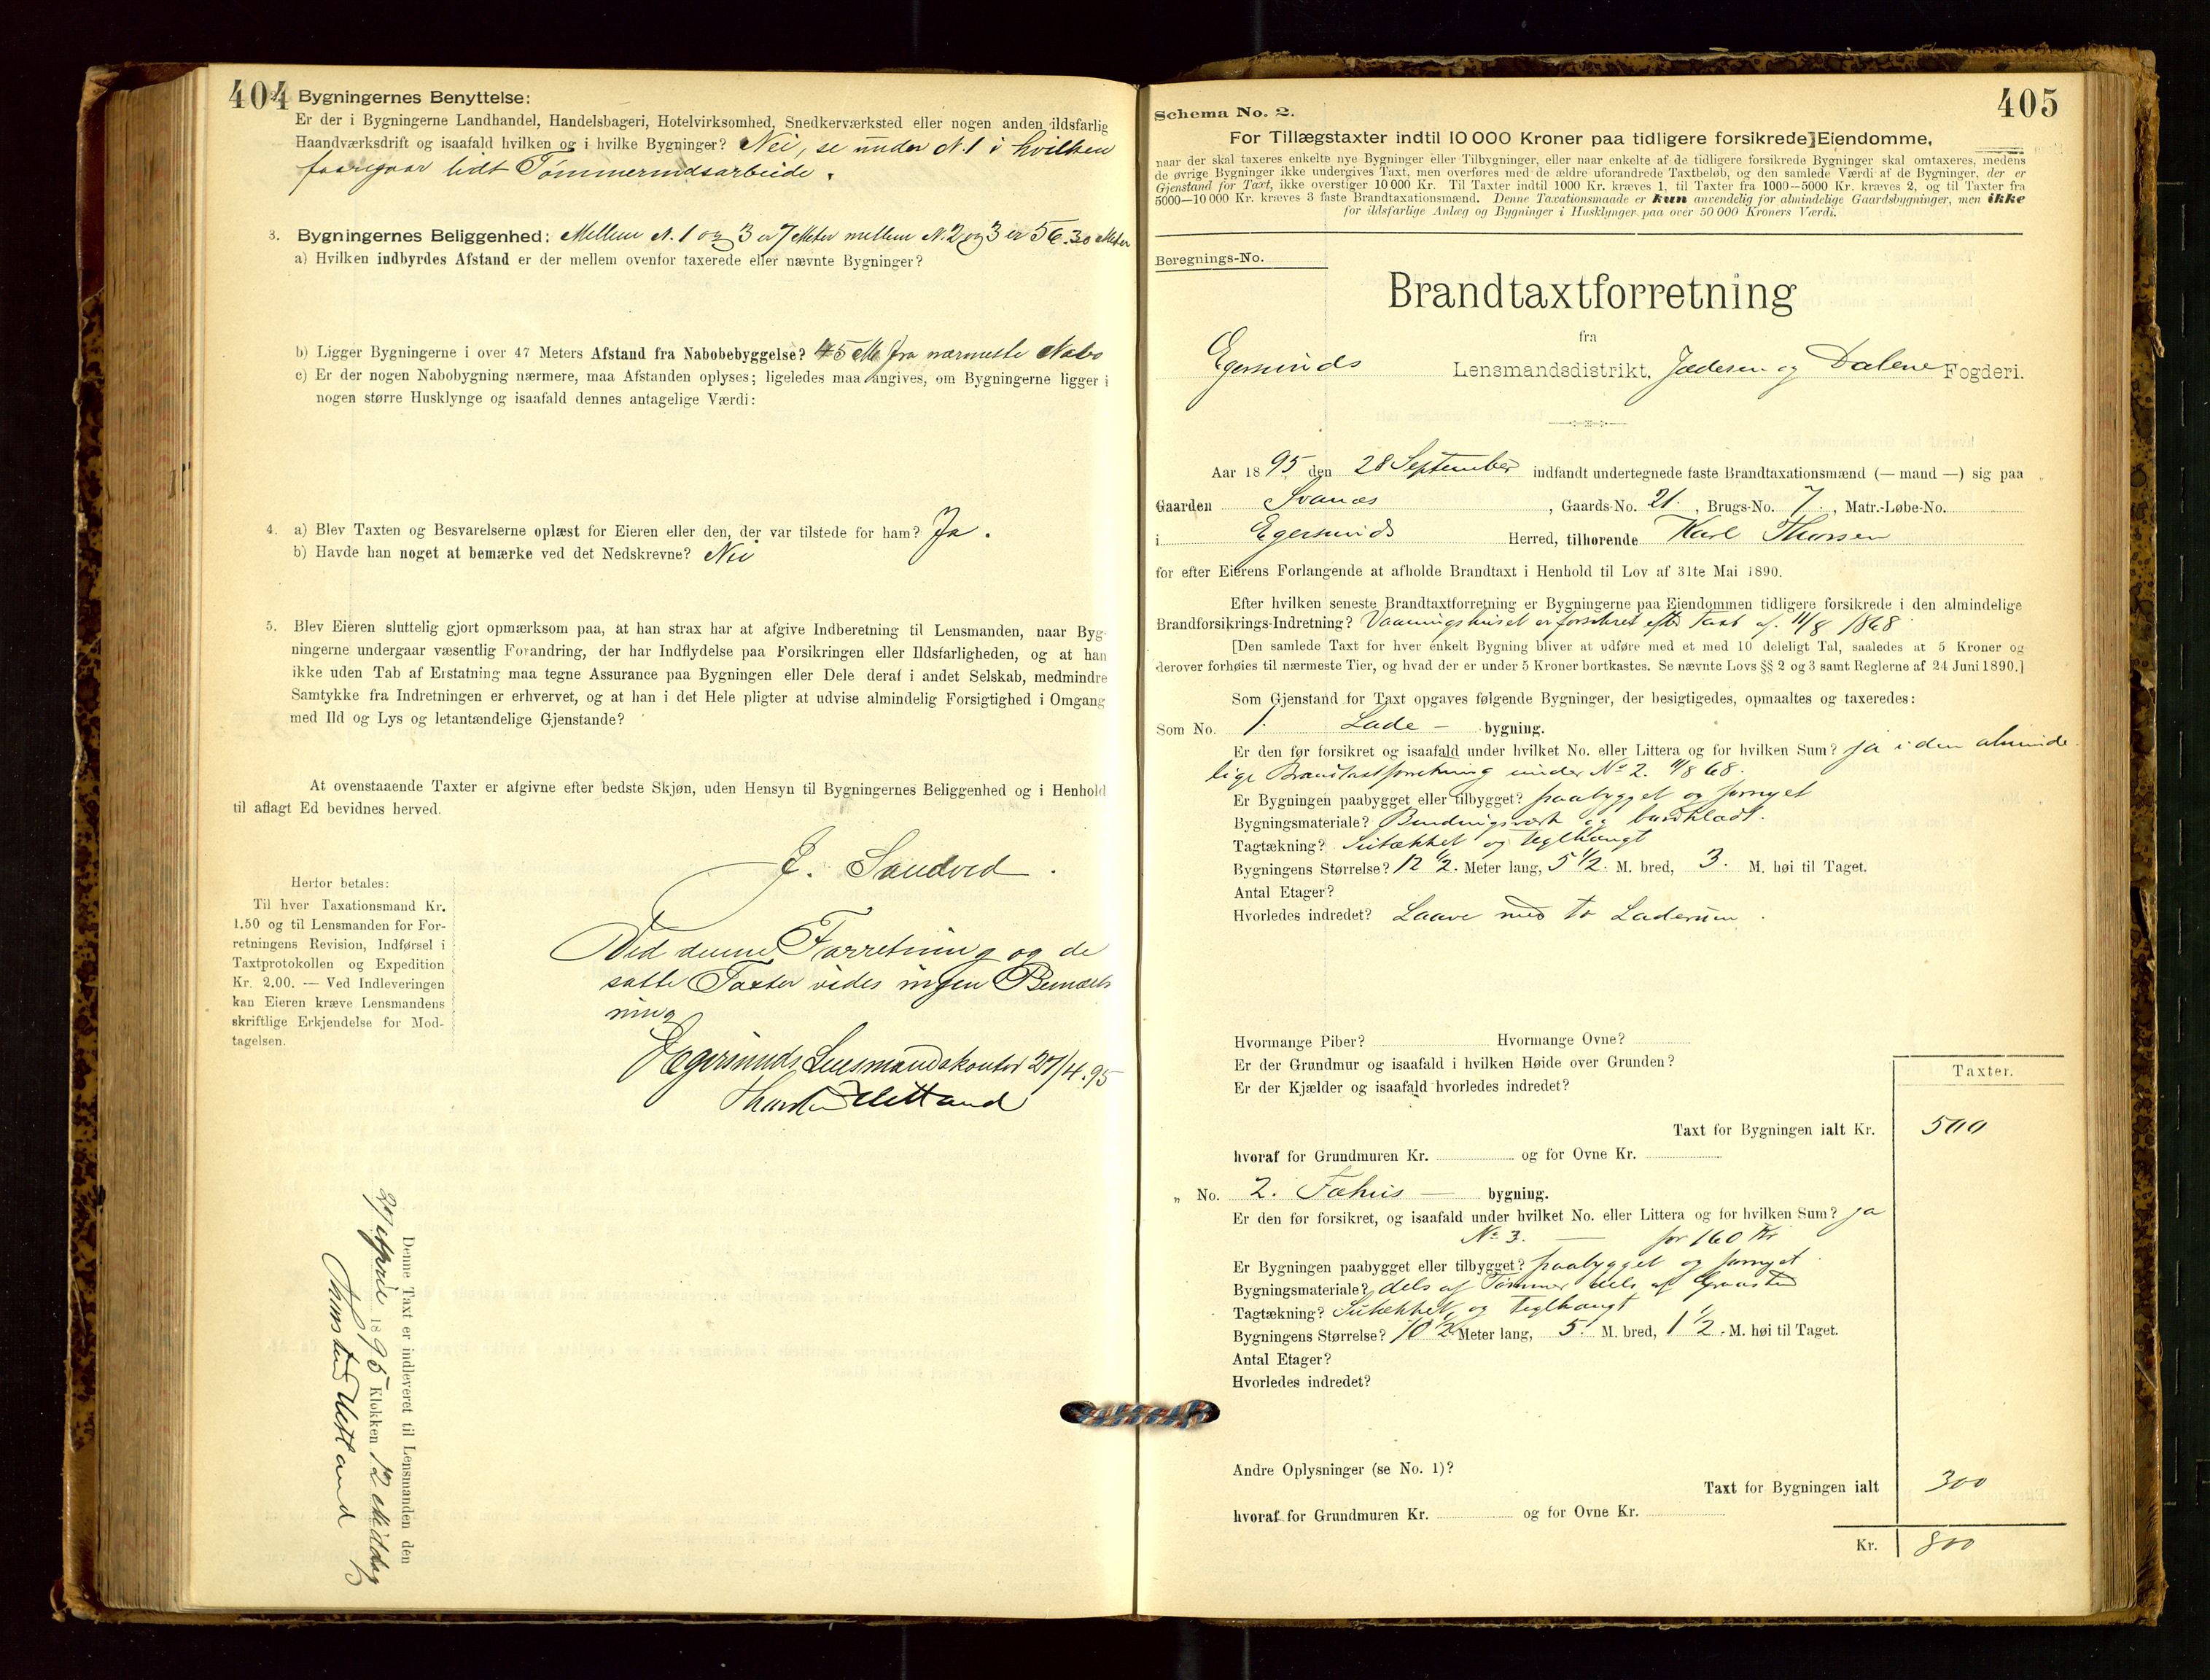 404
Bygningernes Benyttelse:
Er der i Bygningerne Landhandel, Handelsbageri, Hotelvirksomhed, Snedkerværksted eller nogen anden ildsfarlig
Haandværksdrift og isaafald hvilken og i hvilke Bygninger? Nei, se under N. 1 i hvilken
foregaar lidt Tømmermdsarbeide.
3. Bygningernes Beliggenhed: Mellem N. 1 og 3 er 7 Meter mellem N. 2 og 3 er 56.30 Meter
a) Hvilken indbyrdes Afstand er der mellem ovenfor taxerede eller nævnte Bygninger?
b) Ligger Bygningerne i over 47 Meters Afstand fra Nabobebyggelse? 45 M fra nærmeste Nabo
c) Er der nogen Nabobygning nærmere, maa Afstanden oplyses; ligeledes maa angives, om Bygningerne ligger i
nogen større Husklynge og isaafald dennes antagelige Værdi:
4. a) Blev Taxten og Besvarelserne oplæst for Eieren eller den, der var tilstede for ham? Ja.
b) Havde han noget at bemærke ved det Nedskrevne? Nei
5. Blev Eieren sluttelig gjort opmærksom paa, at han strax har at afgive Indberetning til Lensmanden, naar Byg-
ningerne undergaar væsentlig Forandring, der har Indflydelse paa Forsikringen eller Ildsfarligheden, og at han
ikke uden Tab af Erstatning maa tegne Assurance paa Bygningen eller Dele deraf i andet Selskab, medmindre
Samtykke fra Indretningen er erhvervet, og at han i det Hele pligter at udvise almindelig Forsigtighed i Omgang
med Ild og Lys og letantændelige Gjenstande?
At ovenstaaende Taxter er afgivne efter bedste Skjøn, uden Hensyn til Bygningernes Beliggenhed og i Henhold
til aflagt Ed bevidnes herved.
J. Sandved.
Herfor betales:
Til hver Taxationsmand Kr.
1.50 og til Lensmanden for For-
retningens Revision, Indførsel i
Taxtprotokollen og Expedition
Kr. 2.00. — Ved Indleveringen
kan Eieren kræve Lensmandens
skriftlige Erkjendelse for Mod-
tagelsen.
Ved denne Forretning og de
satte Taxter vides ingen Bemærk
ning
Egersunds Lensmandskontor 27/4.95
Thorsten Hetland
Denne Taxt er indleveret til Lensmanden den
27 April 1895 Klokken 12 Middag
Thorsten Hetland
405
Schema No. 2.
For Tillægstaxter indtil 10 000 Kroner paa tidligere forsikrede Eiendomme,
naar der skal taxeres enkelte nye Bygninger eller Tilbygninger, eller naar enkelte af de tidligere forsikrede Bygninger skal omtaxeres, medens
de øvrige Bygninger ikke undergives Taxt, men overføres med de ældre uforandrede Taxtbeløb, og den samlede Værdi af de Bygninger, der er
Gjenstand for Taxt, ikke overstiger 10 000 Kr. Til Taxter indtil 1000 Kr. kræves 1, til Taxter fra 1000—5000 Kr. kræves 2, og til Taxter fra
5000—10 000 Kr. kræves 3 faste Brandtaxationsmænd. Denne Taxationsmaade er kun anvendelig for almindelige Gaardsbygninger, men ikke
for ildsfarlige Anlæg og Bygninger i Husklynger paa over 50 000 Kroners Værdi.
Beregnings-No.
Brandtaxtforretning
fra
Egersunds Lensmandsdistrikt, Jæderen og Dalene Fogderi.
Aar 1895 den 28 September indfandt undertegnede faste Brandtaxationsmænd (— mand —) sig paa
Gaarden Svanæs, Gaards-No. 21, Brugs-No. 7, Matr.-Løbe-No.
i Egersunds Herred, tilhørende Karl Thorsen
for efter Eierens Forlangende at afholde Brandtaxt i Henhold til Lov af 31te Mai 1890.
Efter hvilken seneste Brandtaxtforretning er Bygningerne paa Eiendommen tidligere forsikrede i den almindelige
Brandforsikrings-Indretning? Vaaningshuset er forsikret efter Taxt af 11/8 1868
[Den samlede Taxt for hver enkelt Bygning bliver at udføre med et med 10 deleligt Tal, saaledes at 5 Kroner og
derover forhøies til nærmeste Tier, og hvad der er under 5 Kroner bortkastes. Se nævnte Lovs §§ 2 og 3 samt Reglerne af 24 Juni 1890.]
Som Gjenstand for Taxt opgaves følgende Bygninger, der besigtigedes, opmaaltes og taxeredes:
Som No. 1. Lade — bygning.
Er den før forsikret og isaafald under hvilket No. eller Littera og for hvilken Sum? ja i den alminde-
lige Brandtaxtforretning under No 2. 11/8 68.
Er Bygningen paabygget eller tilbygget? paabygget og fornyet
Bygningsmateriale? Bindingsverk og bordklædt.
Tagtækning? og Teglhængt
Bygningens Størrelse? 12 1/2. Meter lang, 5 1/2. M. bred, 3. M. høi til Taget.
Antal Etager?
Hvorledes indredet? Laave med to Laderum.
Hvormange Piber? Hvormange Ovne?
Er der Grundmur og isaafald i hvilken Høide over Grunden?
Er der Kjælder og isaafald hvorledes indredet?
Taxter.
Taxt for Bygningen ialt Kr. 500
hvoraf for Grundmuren Kr. og for Ovne Kr.
" No. 2. Fæhus — bygning.
Er den før forsikret, og isaafald under hvilket No. eller Littera og for hvilken Sum? ja
No 3. — for 160 Kr
Er Bygningen paabygget eller tilbygget? paabygget og fornyet
Bygningsmateriale? dels af Tømmer dels af Graasten
Tagtækning? og Teglhængt
Bygningens Størrelse? 10 1/2 Meter lang, 5. M. bred, 1 1/2. M. høi til Taget.
Antal Etager?
Hvorledes indredet?
Andre Oplysninger (se No. 1)?
Taxt for Bygningen ialt 300
hvoraf for Grundmuren Kr. og for Ovne Kr.
Kr. 800